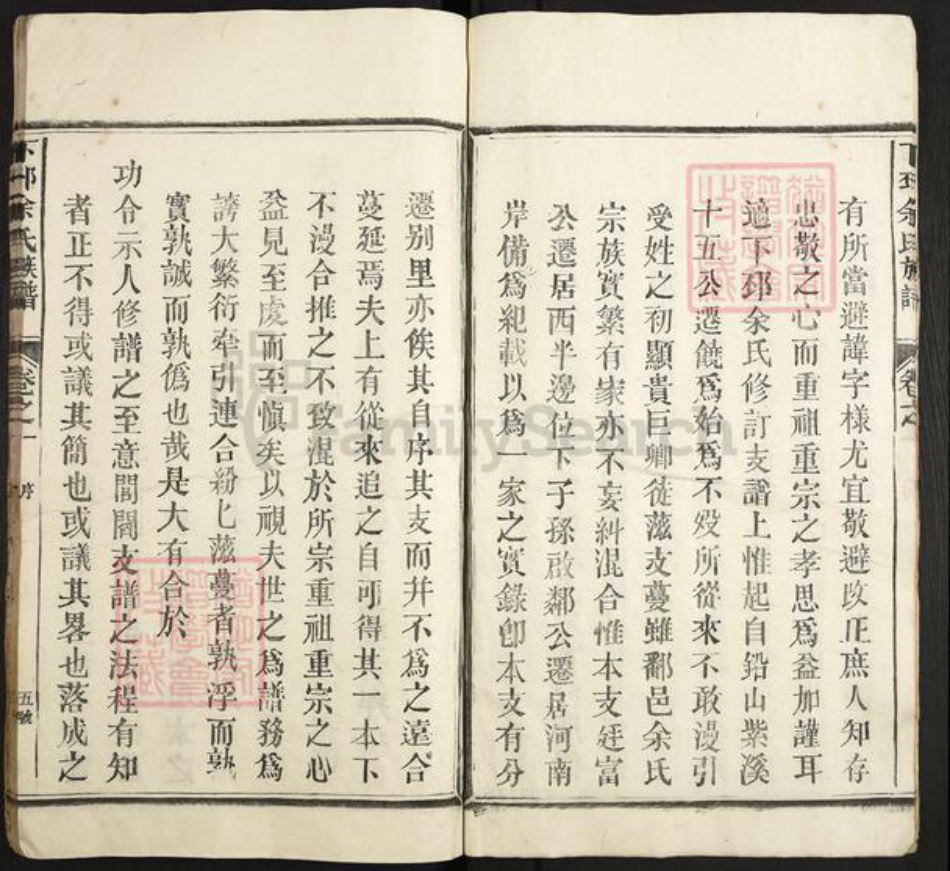 有所當避諱字樣尤宜敬避改正庶人知存
忠敬之心而重祖重宗之孝思爲益加謹耳
適下邳余氏修訂支譜上惟起自鉛山紫溪
十五公遷饒爲始爲不沒所從來不敢漫引
受姓之初顯貴巨卿徒滋支蔓雖鄱邑余氏
宗族實繁有家亦不妄糾混合惟本支廷富
公遷居西半邊位下子孫啟鄰公遷居河南
岸備爲紀載以爲一家之實錄卽本支有分
遷别里亦俟其自序其支而并不爲之遠合
蔓延焉夫上有從來追之自可得其一本下
不漫合推之不致混於所宗重祖重宗之心
益見至虔而至愼矣以視夫世之爲譜務爲
誇大繁衍牽引連合紛匕滋蔓者孰浮而孰
實孰誠而孰僞也哉是大有合於
功令示人修譜之至意閭閻支譜之法程有知
者正不得或議其簡也或議其畧也落成之
下邳余氏族譜
卷之一
序
五號
FamilySearch